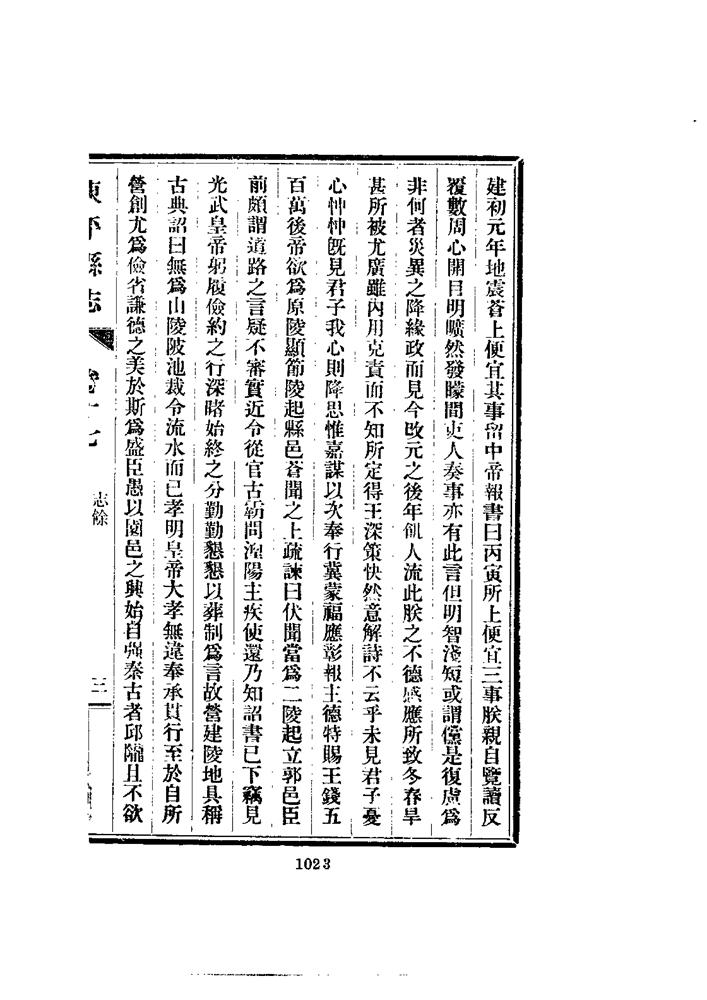 建初元年地震蒼上便宜其事留中帝報書曰丙寅所上便宜三事朕親自覽讀反
覆數周心開目明曠然發矇間吏人奏事亦有此言但明智淺短或謂儻是復慮為
非何者災異之降緣政而見今改元之後年飢人流此朕之不德感應所致冬春旱
甚所被尤廣雖內用克責而不知所定得王深策快然意解詩不云乎未見君子憂
心忡忡既見君子我心則降思惟嘉謀以次奉行冀蒙福應彰報主德特賜王錢五
百萬後帝欲爲原陵顯節陵起縣邑蒼聞之上疏諫曰伏聞當爲二陵起立郭邑臣
前頗謂道路之言疑不審實近令從官古霸問湼陽主疾使還乃知詔書已下竊見
光武皇帝躬履儉約之行深睹始終之分勤勤懇懇以葬制爲言故營建陵地具稱
古典詔曰無爲山陵陂池裁令流水而已孝明皇帝大孝無違奉承貫行至於自所
營創尤爲儉省謙德之美於斯爲盛臣愚以園邑之興始自彊秦古者邱隴且不欲
東平縣志 卷十七 志餘 三
1023